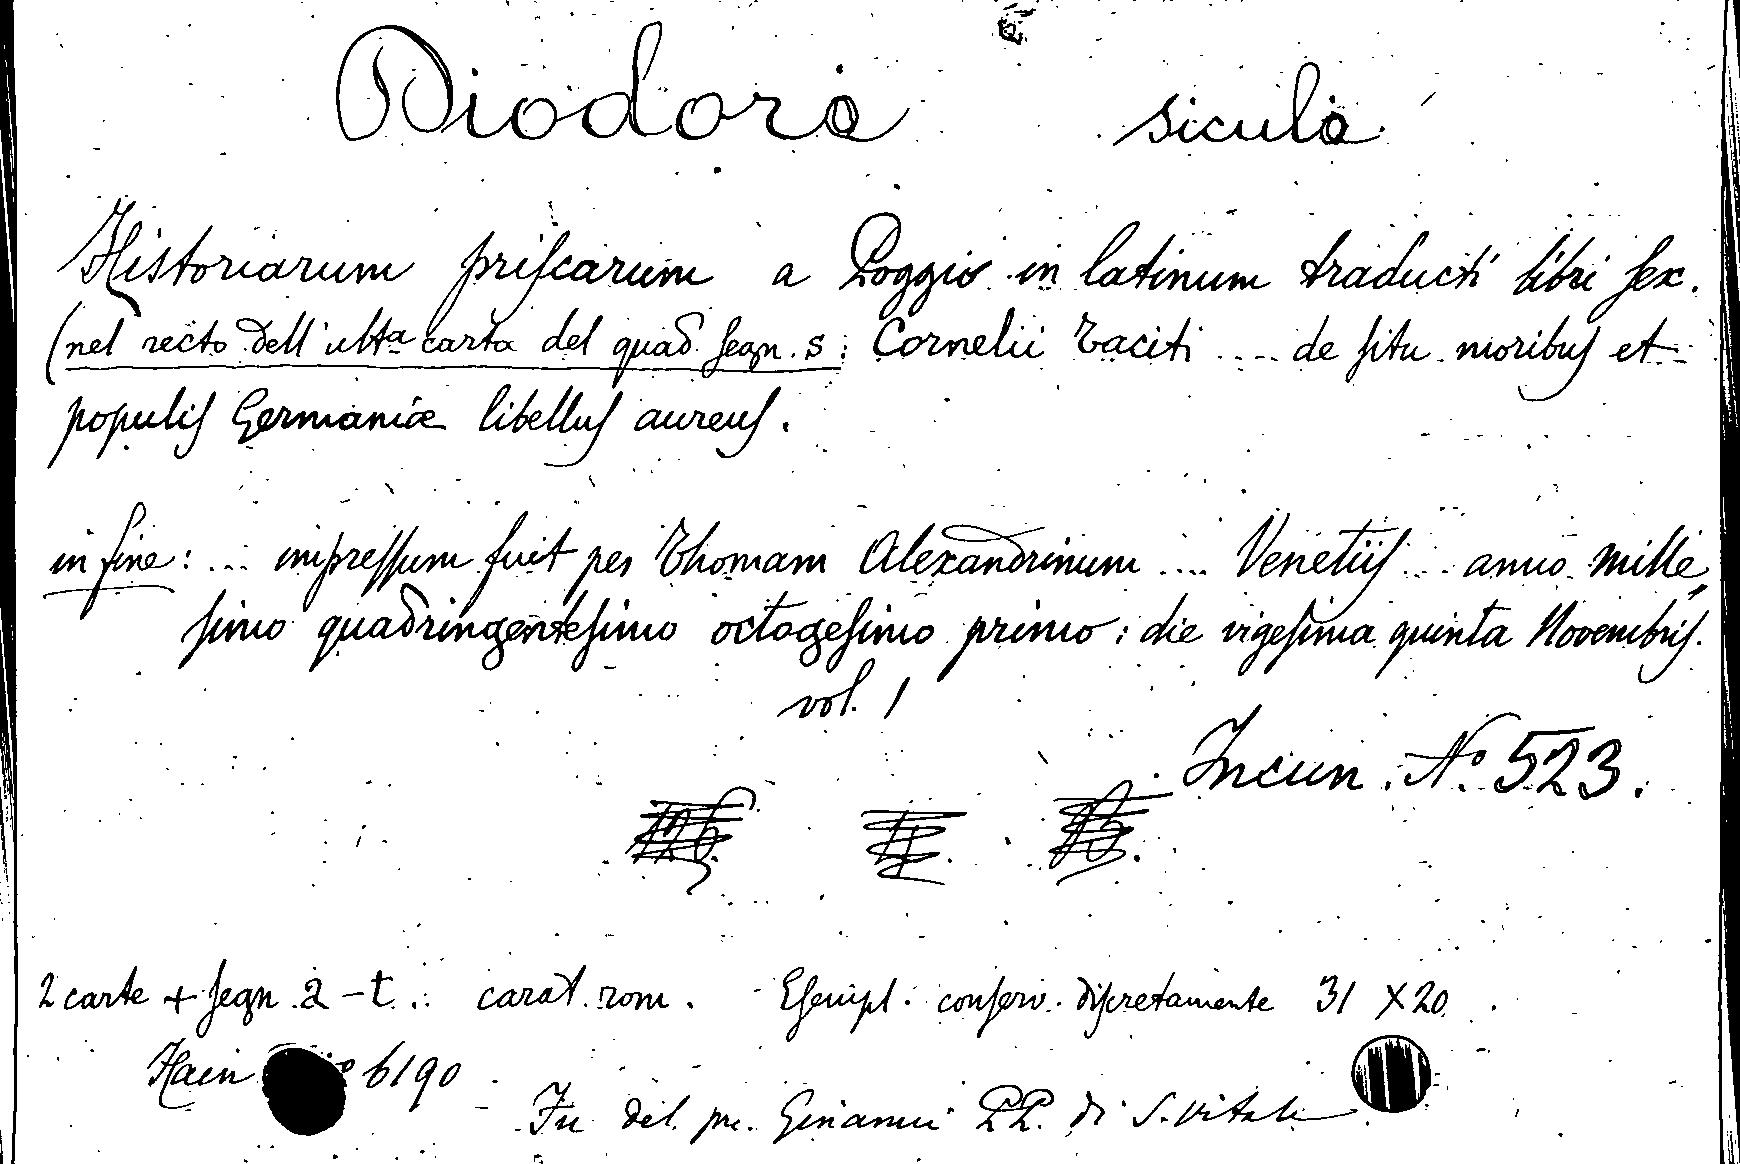 Diodoro siculo
Historiarum priscarum a Poggio in latinum traducti libri sex.
(nel recto dell'ultª carta del quad. segn. s: Cornelii Taciti .... de situ moribus et
populis Germaniæ libellus aureus.
in fine: ... impressum fuit per Thomam Alexandrinum .... Venetiis ... anno mille,
simo quadringentesimo octogesimo primo: die vigesima quinta Novembris.
vol. 1
Incun. Nº 523.
2 carte + segn. a-t. carat. rom. Esempl. conserv. discretamente 31 X 20.
Hain 6190
Fu del Ginanni PP. di S. Vitale